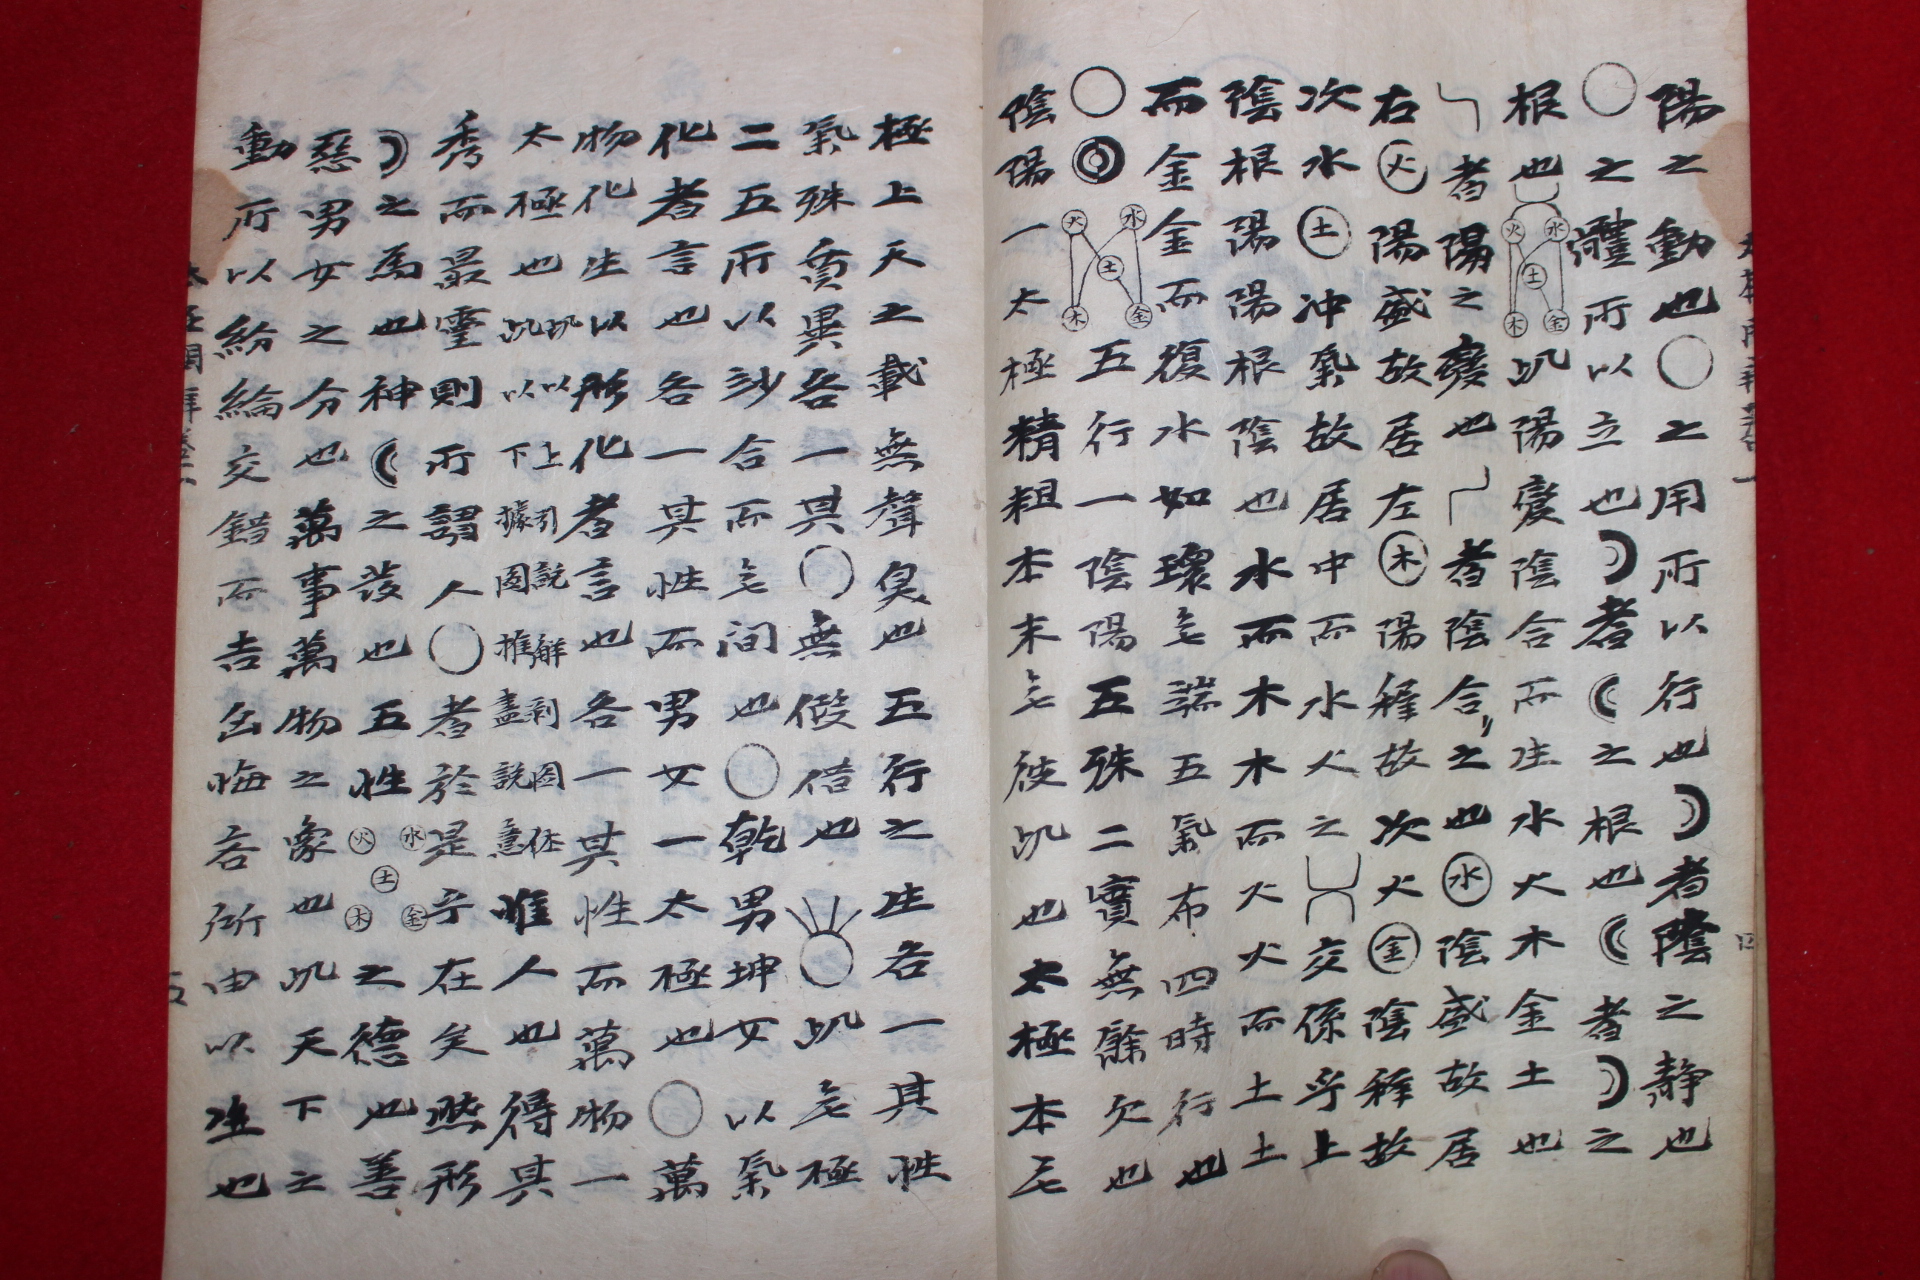 陽之動也○之用所以行也☽者陰之靜也
○之體所以立也☽者☾之根也☾者☽之
根也 水火土木金 此陽變陰合而生水火木金土也
者陽之變也 者陰合之也水陰盛故居
右火陽盛故居左木陽穉故次火金陰穉故
次水土冲氣故居中而水火之 交係乎上
陰根陽陽根陰也水而木木而火火而土土
而金金而復水如環无端五氣布四時行也
○◎ 水火土木金 五行一陰陽五殊二實無餘欠也
陰陽一太極精粗本末无彼此也太極本无
極上天之載無聲臭也五行之生各一其性
氣殊質異各一其○無假借也 ○此无極
二五所以妙合而无间也○乾男坤女以氣
化者言也各一其性而男女一太極也○萬
物化生以形化者言也各一其性而萬物一
太極也此以上引說解剥圖体此以下據圖推盡說意惟人也得其
秀而最靈則所謂人○者於是乎在矣然形
☽之為也神☾之發也五性 水火土木金 之德也善
惡男女之分也萬事萬物之象也此天下之
動所以紛綸交錯而吉凶悔吝所由以生也
太極圖解
五
四